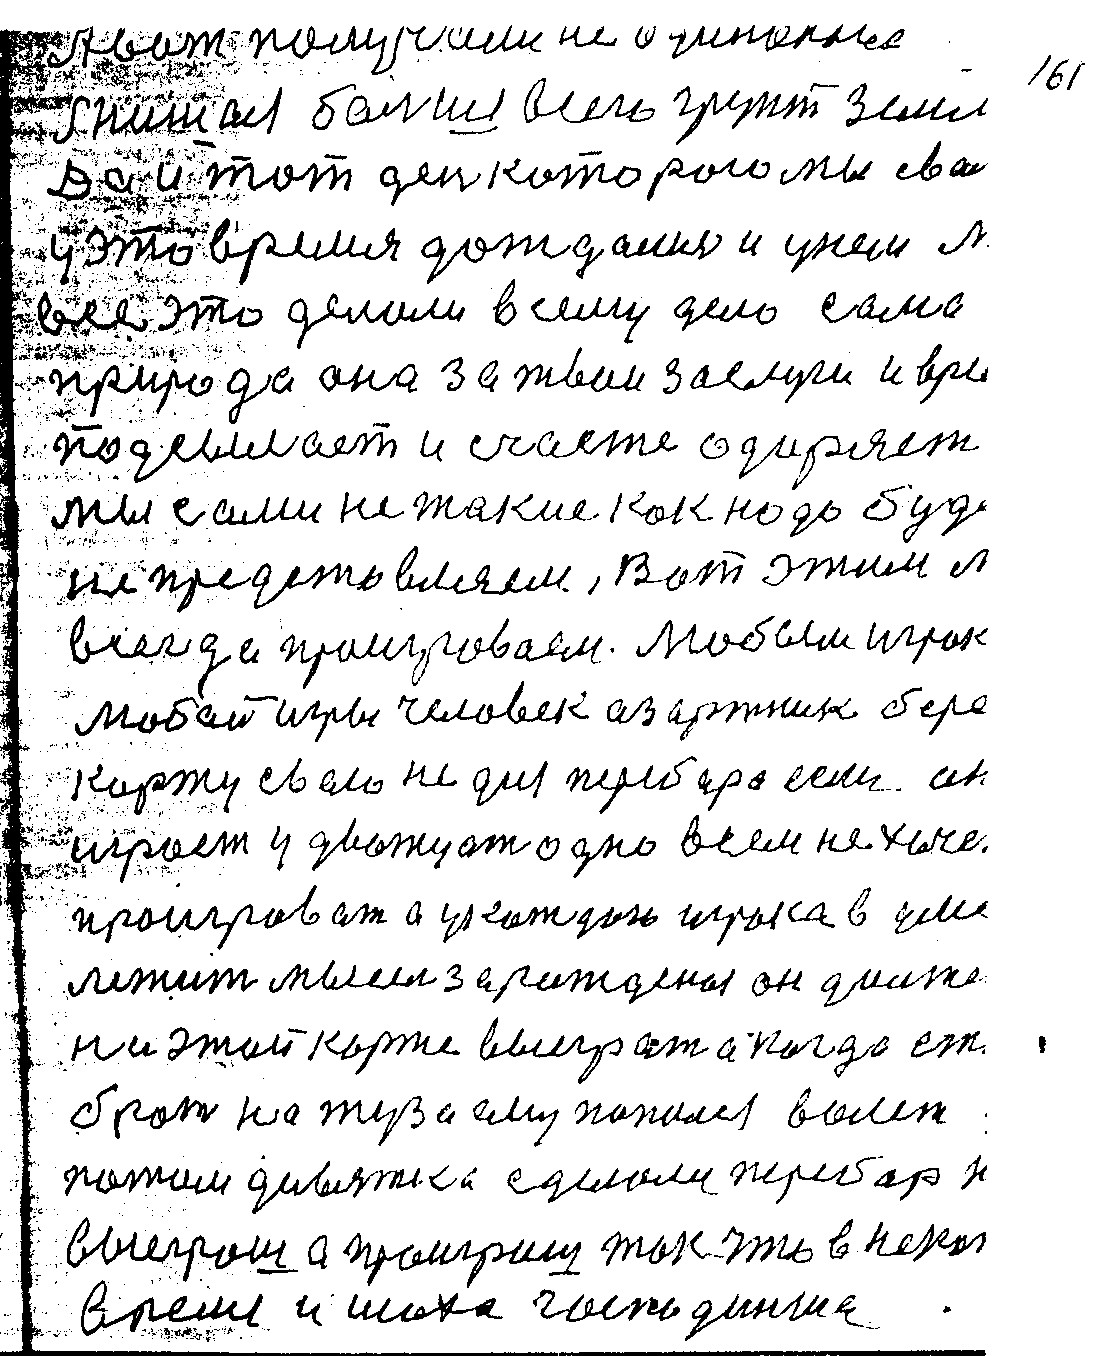 А вот получали не одинокие
161
больше всего грунт земл
да и тот ден которого мы сва
у это время дождался и унем л
все это делали всему дело сама
природа она за твои заслуги и вре
подсылает и счасте одиряет
мы сами не такие как нодо буде
не представляем, Вот этим м
всегда проигроваем. Любым игрок
любой игры человек азартник бере
карту сваю не для перебара если он
играет у двоцуат одно всем не хоче
проигроват а укождого игрока в уме
лежит мысля зарождена он долже
на этой карте выеграт а когда ст
брат на туза ему попался волет
потом дивятка сделали перебар н
выеграш а проиграш так что в некот
время и шоха господинша